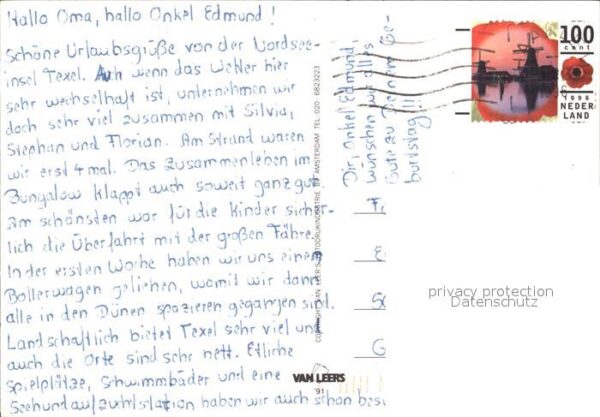 Hallo Oma, hallo Onkel Edmund!
Schöne Urlaubsgrüße von der Nordsee-
insel Texel. Auch wenn das Wetter hier
sehr wechselhaft ist, unternehmen wir
doch sehr viel zusammen mit Silvia,
Stephan und Florian. Am Strand waren
wir erst 4 mal. Das Zusammenleben im
Bungalow klappt auch soweit ganz gut.
Am schönsten war für die Kinder sicher-
lich die Überfahrt mit der großen Fähre.
In der ersten Woche haben wir uns einen
Bollerwagen geliehen, womit wir dann
alle in den Dünen spazieren gegangen sind.
Landschaftlich bietet Texel sehr viel und
auch die Orte sind sehr nett. Etliche
Spielplätze, Schwimmbäder und eine
Seehundaufzuchtstation haben wir auch schon besi
Dir, Onkel Edmund,
wünschen wir alles
Gute zu Deinem Ge-
burtstag!!!
COPYRIGHT VAN LEER'S AMSTERDAM TEL. 020 - 6823223
VAN LEERS
'91
100
cent
1996
NEDER
LAND
privacy protection
Datenschutz